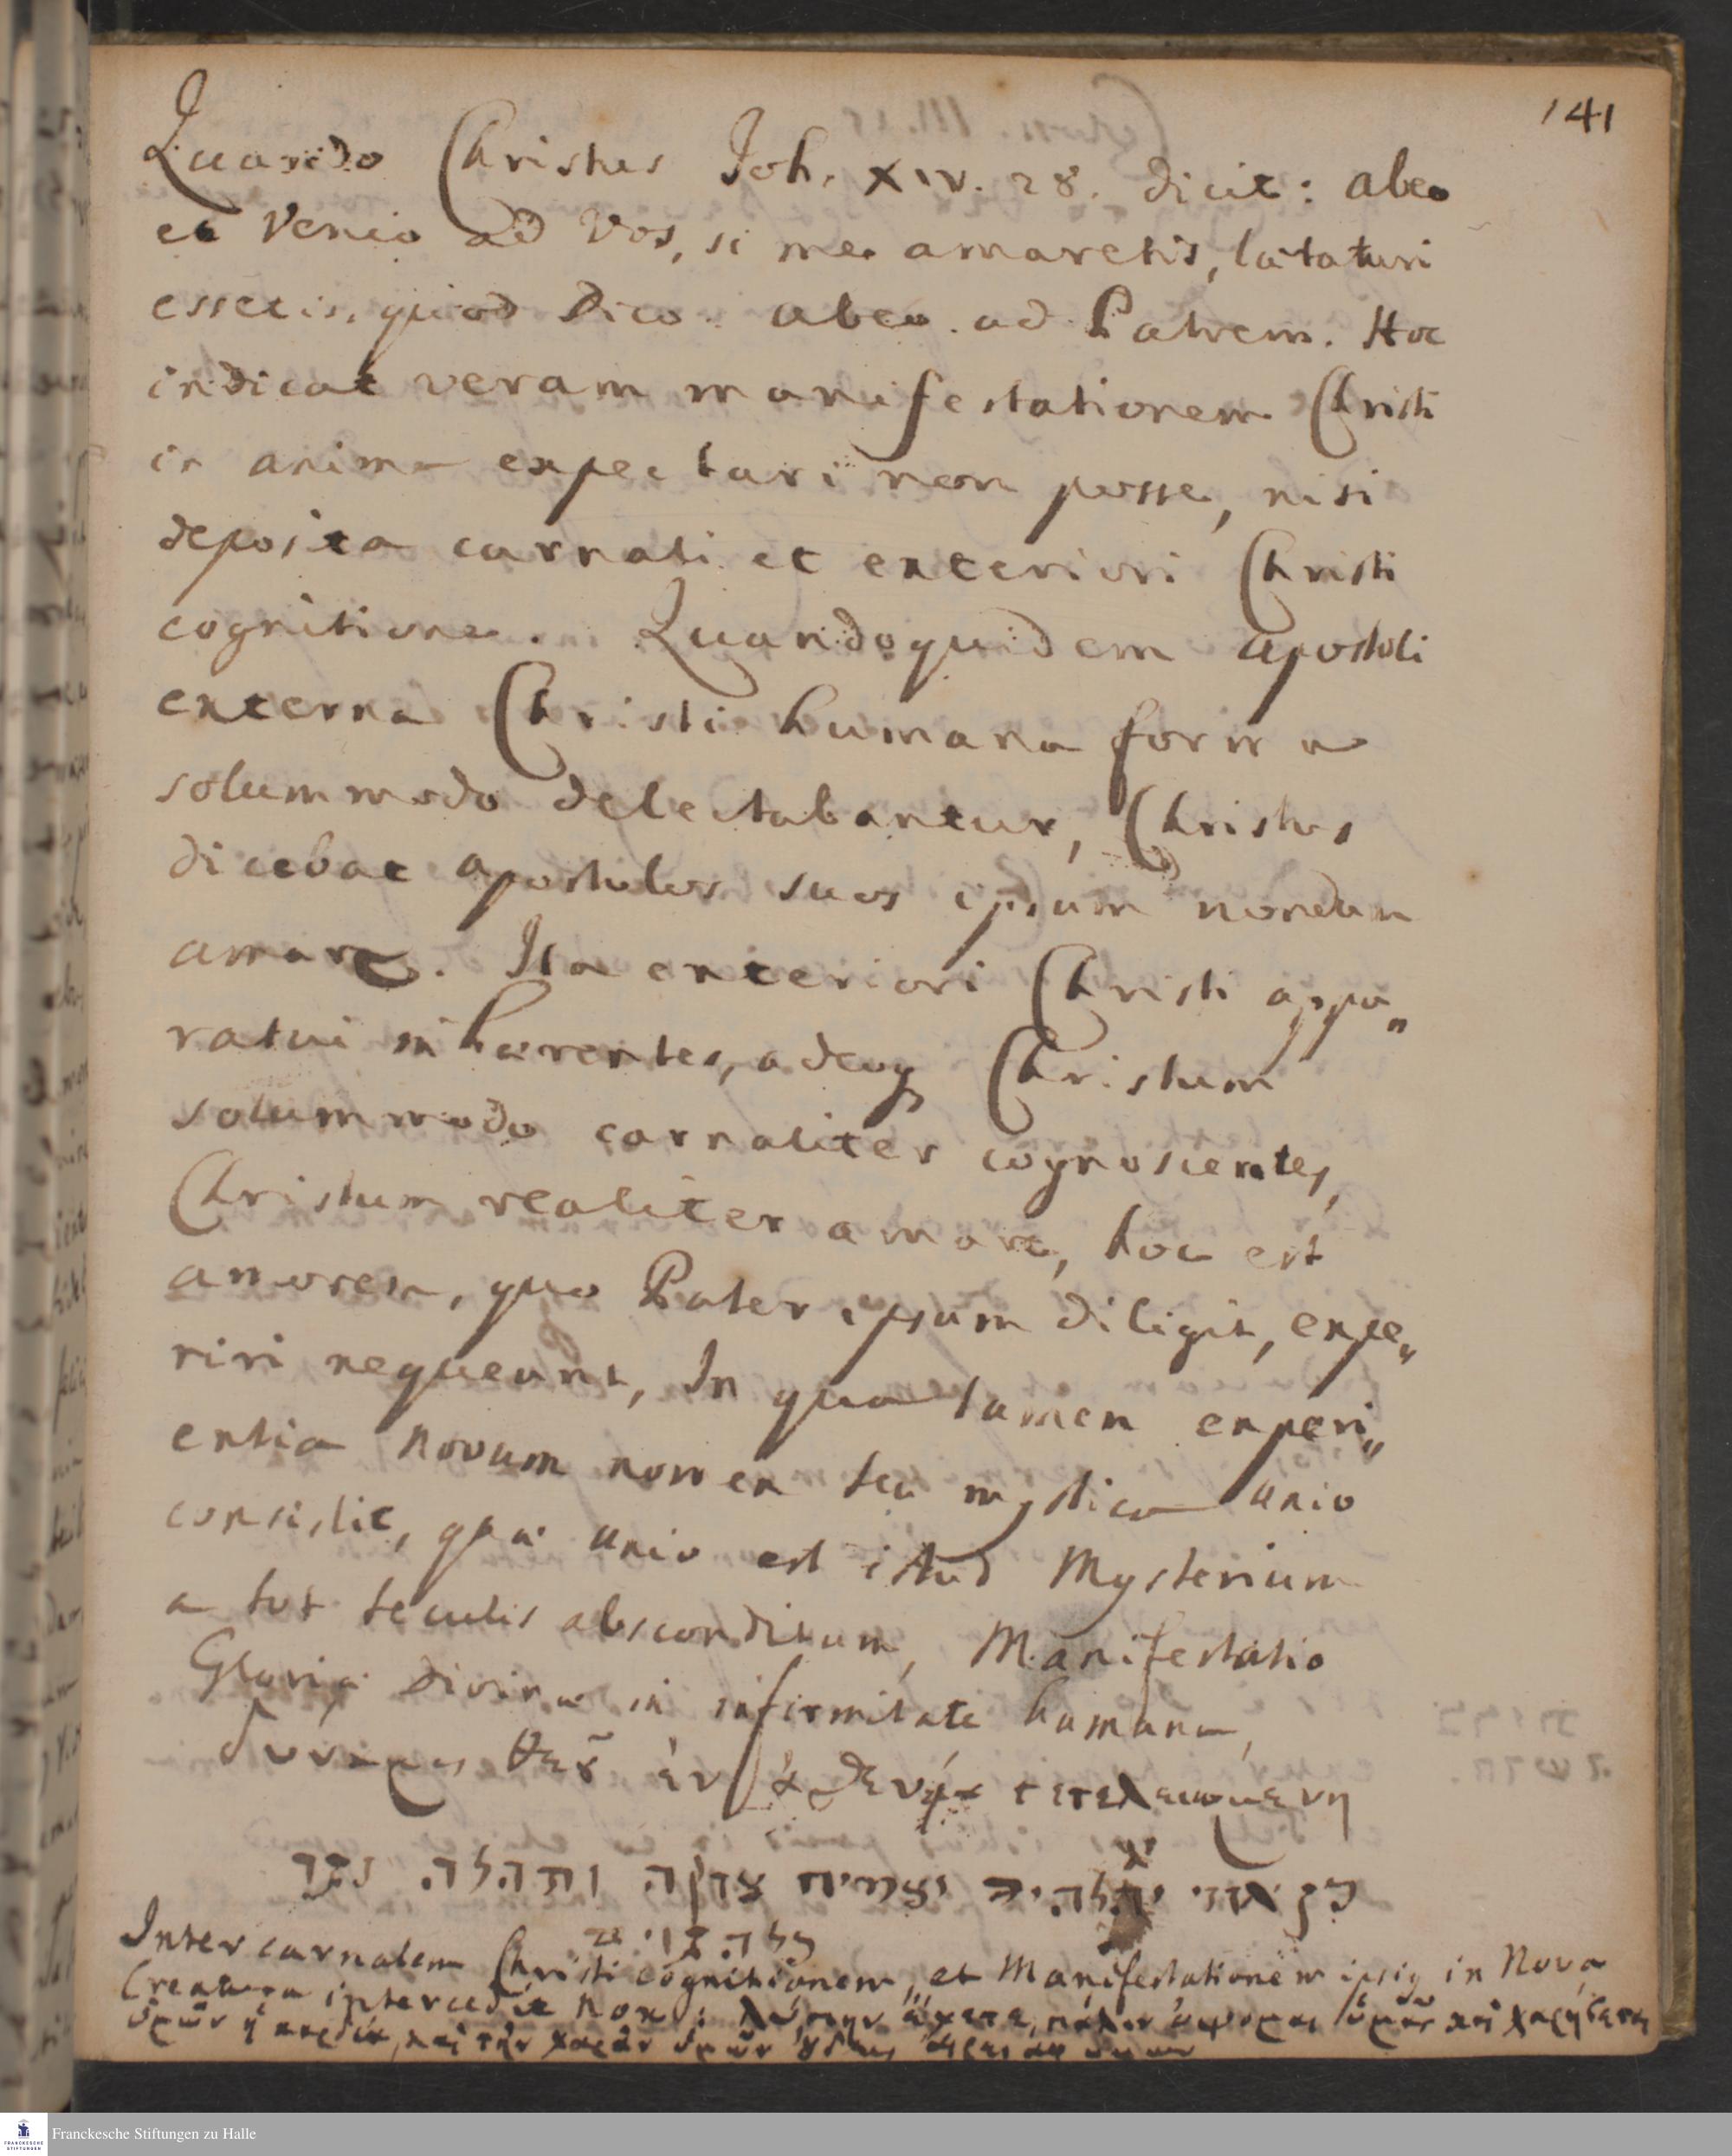 141
Quando Christus Joh. XIV. 28. dicit: abeo
et Venio ad Vos, si me amaretis, lætaturi
essetis, quod dico: abeo ad Patrem. Hoc
indicat veram manifestationem Christi
in anima expectari non posse, nisi
deposita carnali et exteriori Christi
cognitione. Quandoquidem apostoli
externa Christi humana forma
solummodo delectabantur, Christus
dicebat apostolos suos ipsum nondum
amare. Ita exteriori Christi appa„
ratui inhærentes, adeoq Christum
solummodo carnaliter cognoscentes,
Christum realiter amare, hoc est
amorem, quo Pater ipsum diligit, expe„
riri nequeunt, In qua tamen experi„
entia novum nomen seu mystica unio
consistit, quæ unio est istud Mysterium
a tot seculis absconditum, Manifestatio
Gloriæ divinæ in infirmitate humana,
δυναμις θεȣ ἐν ἀσθενείᾳ τετελειωμενη
כן אדני יהוה יצמיח צדקה ותהלה נגד
כל הגוים
Inter carnalem Christi cognitionem, et Manifestationem ipsiq in Nova
Creatura intercedit nox: λύπην ἔχετε, πάλιν ὄψομαι ὑμᾶς καὶ χαρήσεται
ὑμῶν ἡ καρδία, καὶ τὴν χαρὰν ὑμῶν ȣδεὶς αἴρει ἀφ ὑμων
Franckesche Stiftungen zu Halle